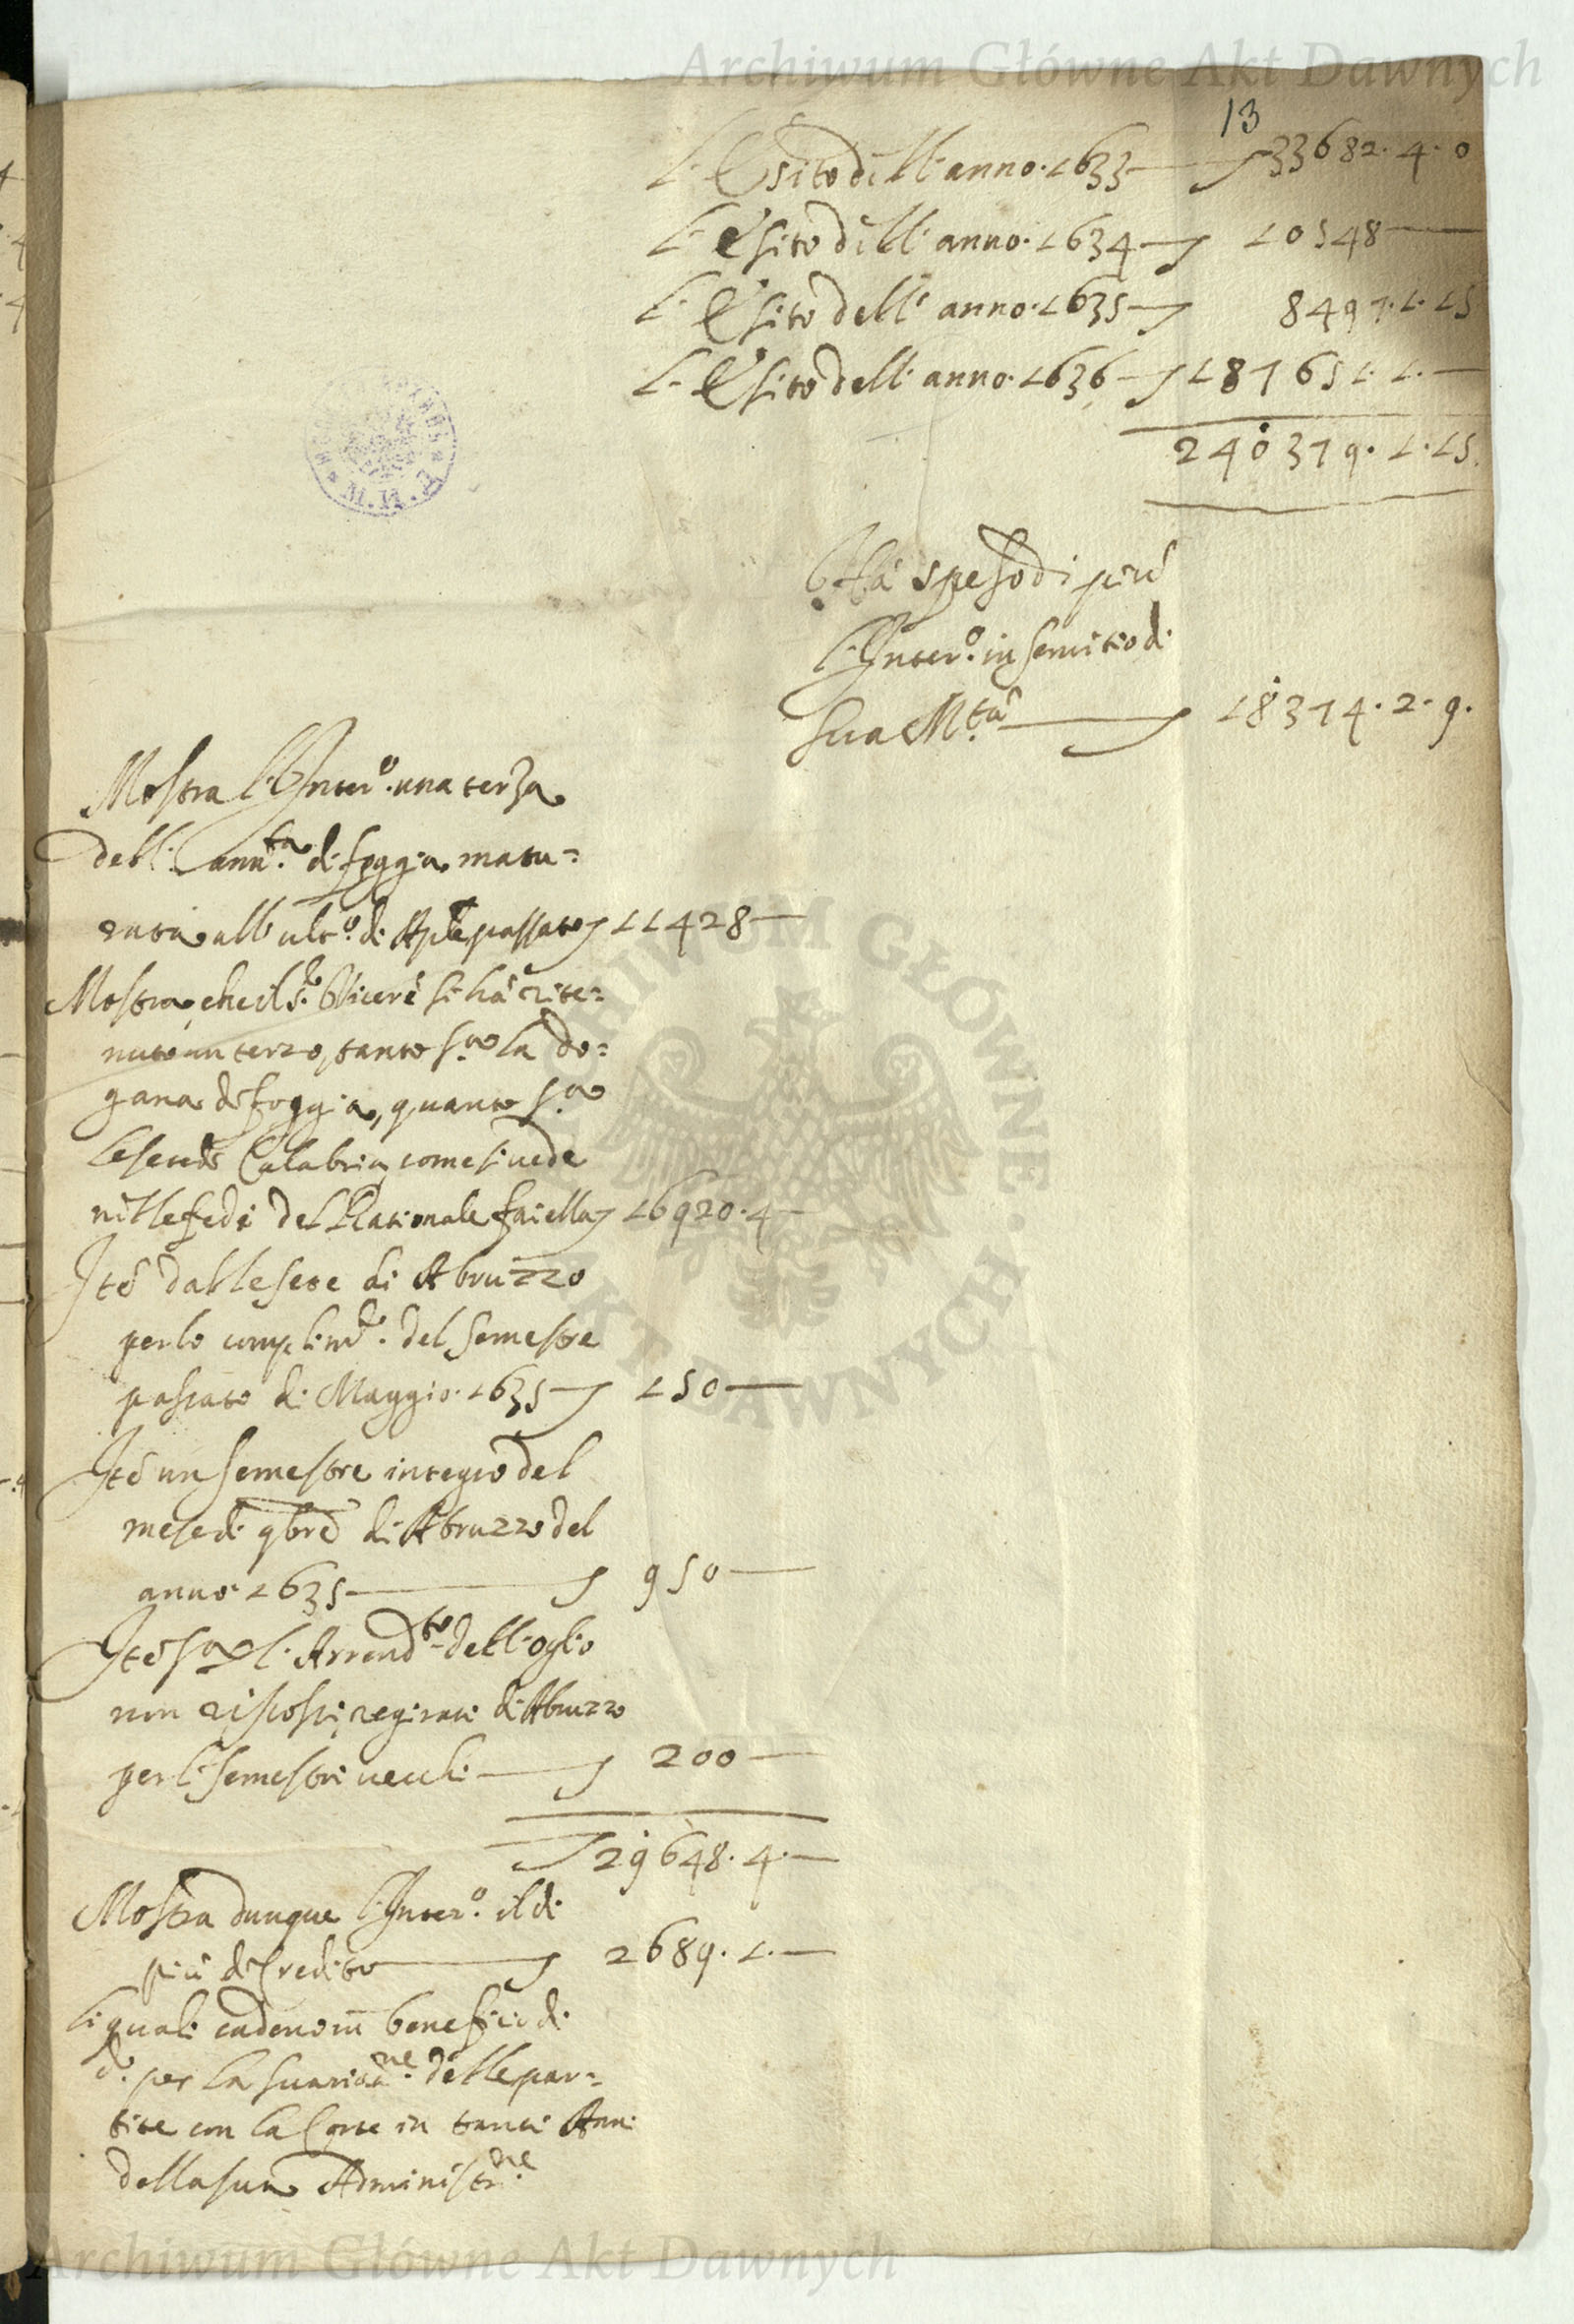 Archiwum Główne Akt Dawnych
13
L'Esito dell'anno. 1633 — 33682. 4. 0
L'Esito dell'anno. 1634 — 10548 —
L'Esito dell'anno. 1635 — 8497. 1. 15
L'Esito dell'anno. 1636 — 187651. 1. —
240379. 1. 15
Hà speso di più
l'Inter.º in servitio di
Sua M.tà — 18374. 2. 9.
Mostra l'Inter.º una terza
dell' di foggia matu=
rata all'ult.º di Aple passato 11428 —
Mostra, che il s.r Vicerè si hà rite=
nuto un terzo, tanto s.a la do=
gana di foggia, quanto s.a
le sete di Calabria, come si vede
nelle fedi del Rationale faiella 16920. 4 —
Itẽ dalle sete di Abruzzo
per lo complim.to del semestre
passato di Maggio. 1635 — 150 —
Itẽ un semestre integro del
mese di 9bre di Abruzzo del
anno 1635 — 950 —
Itẽ s.a l'Arrend.to dell'oglio
non di Abruzzo
per li semestri vecchi — 200 —
29648. 4. —
Mostra dunque l'Inter.º il di
più di Credito — 2689. 1. —
li quali cadeno in beneficio di
d.º per la delle par=
tite con la Corte in tanti Anni
della sua Administr.ne
Archiwum Główne Akt Dawnych
ARCHIWUM GŁÓWNE AKT DAWNYCH